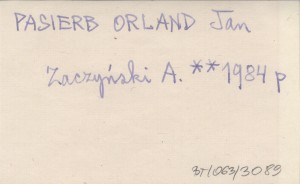 PASIERB ORLAND Jan
Zaczyński A. **1984 p
3T/063/3089